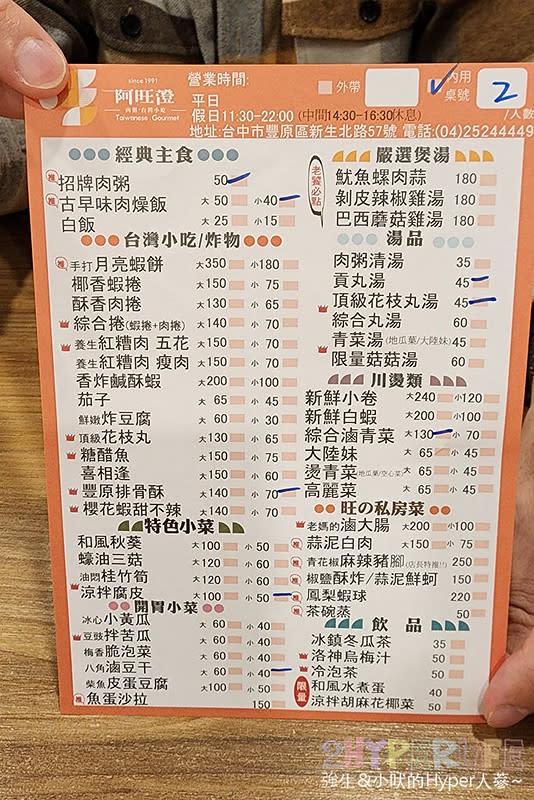 since 1991
阿旺澄
肉粥·台灣小吃
Taiwanese Gourmet
營業時間:
平日
假日11:30-22:00 (中間14:30-16:30休息)
地址:台中市豐原區新生北路57號 電話:(04)25244449
外帶
內用
桌號
2
/人數
經典主食
推 招牌肉粥 50
推 古早味肉燥飯 大 50 小 40
白飯 大 25 小 15
台灣小吃/炸物
推 手打月亮蝦餅 大350 小180
椰香蝦捲 大150 小 75
酥香肉捲 大130 小 65
綜合捲(蝦捲+肉捲) 大140 小 70
養生紅糟肉 五花 大150 小 70
養生紅糟肉 瘦肉 大150 小 70
香炸鹹酥蝦 大200 小100
茄子 大 65 小 45
鮮嫩炸豆腐 大 60 小 30
頂級花枝丸 大130 小 65
糖醋魚 大150 小 75
喜相逢 大150 小 60
豐原排骨酥 大140 小 70
櫻花蝦甜不辣 大140 小 70
特色小菜
和風秋葵 大100 小 50
蠔油三菇 大120 小 60
油悶桂竹筍 大120 小 60
涼拌腐皮 大100 小 50
開胃小菜
冰心小黃瓜 大 60 小 40
豆豉拌苦瓜 大 60 小 40
梅香脆泡菜 大 60 小 40
八角滷豆干 大 60 小 40
柴魚皮蛋豆腐 大100 小 50
推 魚蛋沙拉 150
老饕必點
嚴選煲湯
魷魚螺肉蒜 180
剝皮辣椒雞湯 180
巴西蘑菇雞湯 180
湯品
肉粥清湯 35
貢丸湯 45
頂級花枝丸湯 45
綜合丸湯 60
青菜湯(地瓜葉/大陸妹) 45
限量菇菇湯 60
川燙類
新鮮小卷 大240 小120
新鮮白蝦 大200 小100
綜合滷青菜 大130 小 70
大陸妹 大 65 小 45
燙青菜(地瓜葉/空心菜) 大 65 小 45
高麗菜 大 65 小 45
旺の私房菜
老媽的滷大腸 大200 小100
推 蒜泥白肉 大150 小 75
推 青花椒麻辣豬腳(店長特推!!) 250
推 椒鹽酥炸/蒜泥鮮蚵 150
推 鳳梨蝦球 220
推 茶碗蒸 50
飲 品
冰鎮冬瓜茶 35
洛神烏梅汁 50
冷泡茶 50
限量
和風水煮蛋 40
涼拌胡麻花椰菜 50
2HYPERLIFE
強生&小吠的Hyper人蔘~